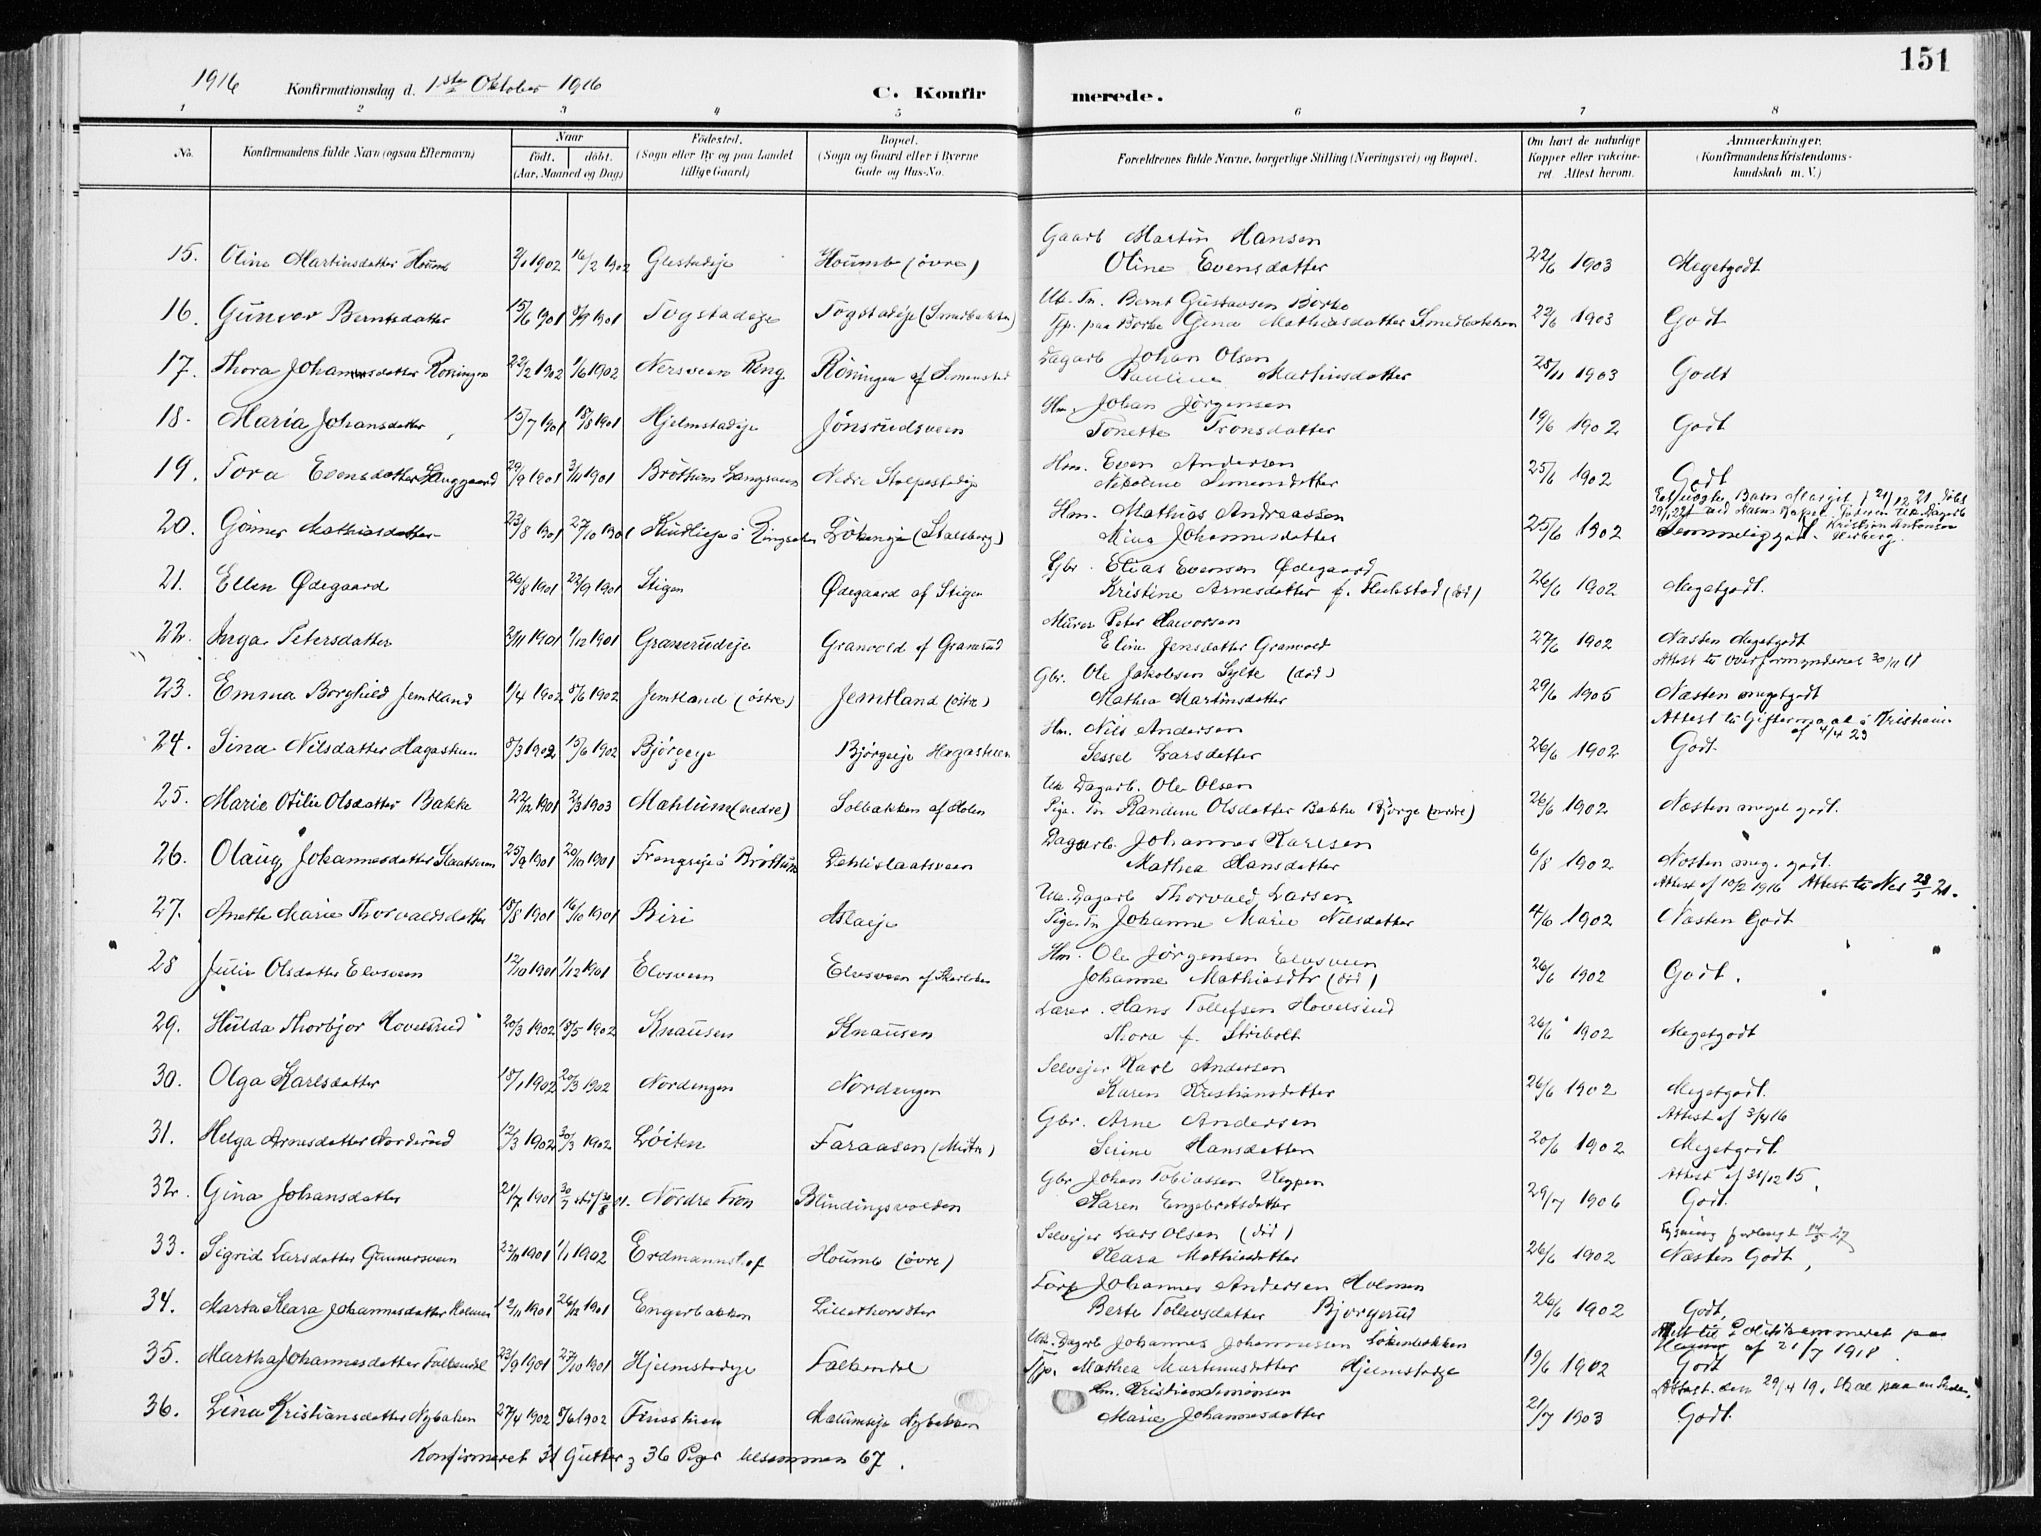 151
1916 Konfirmationsdag d. 1ste Oktober 1916 C. Konfirmerede.
1 2 3 4 5 6 7 8
No.
Konfirmandens fulde Navn (ogsaa Efternavn)
Naar
født. døbt.
(Aar, Maaned og Dag)
Fødested.
(Sogn eller By og paa Landet
tillige Gaard)
Bopæl.
(Sogn og Gaard eller i Byerne
Gade og Hus-No.
Forældrenes fulde Navne, borgerlige Stilling (Næringsvei) og Bopæl.
Om havt de naturlige
Kopper eller vakcine-
ret. Attest herom.
Anmærkninger.
(Konfirmandens Kristendoms-
kundskab m. V.)
Gaarb Martin Hansen
15. Oline Martinsdatter Houmb 2/1 1902 16/2 1902 Glestadeje Houmb (övre) Oline Evensdatter 22/6 1903 Megetgodt
Uk. Tn. Bernt Gustavsen Börke
16. Gunvor Berntsdatter 15/6 1901 8/9 1901 Togstadeje Togstadeje (Smedbakken) Tjp. paa Börke Gina Mathiasdatter Smedbakken 22/6 1903 Godt
Dagarb Johan Olsen
17. Thora Johannesdatter Röningen 22/2 1902 1/6 1902 Nersveen Ring Röningen af Simenstad Pauline Martinsdatter 28/11 1903 Godt
Hm. Johan Jörgensen
18. Maria Johansdatter 15/7 1901 18/8 1901 Hjelmstadeje Jönsrudsveen Tonette Tronsdatter 19/6 1902 Godt
Hm. Even Andersen
19. Tora Evensdatter Langgaard 29/9 1901 3/11 1901 Bröttum Langsveen Nedre Stolpestadeje Nikoline Simensdatter 25/6 1902 Godt
Hm. Mathias Andreassen
20. Gönner Mathiasdatter 23/8 1901 27/10 1901 Kindlieje i Ringsaker Lökeneje (Stalsberg) Mina Johannesdatter 25/6 1902 Temmelig godt.
Gbr. Elias Evensen Ødegaard
21. Ellen Ødegaard 26/8 1901 22/9 1901 Stigen Ødegaard af Stigen Kristine Arnesdatter f. Hulestad (död) 26/6 1902 Megetgodt.
Murer Peter Haworsen
22. Inga Petersdatter 2/11 1901 1/12 1901 Granerudeje Granvold af Granerud Eline Jensdatter Granvold 27/6 1902 Næsten Megetgodt
Attest til Overformynderiet 30/11 18
Gbr. Ole Jakobsen Sylte (död)
23. Emma Borghild Jemtland 1/4 1902 8/6 1902 Jemtland (östre) Jemtland (östre) Mathea Martinsdatter 29/6 1905 Næsten megetgodt
Attest til Giftermaal i Kristiania
af 4/4 23
Hm. Nils Andersen
24. Sina Nilsdatter Hagasteen 8/3 1902 15/6 1902 Björgeje Björgeje Hagasteen Sessel Larsdatter 26/6 1902 Godt.
Uk Dagarb. Ole Olsen
25. Marie Otilie Olsdatter Bakke 22/12 1901 2/3 1903 Mæhlum (nedre) Solbakken af Holen Pige. Tn Randine Olsdatter Bakke Björge (nedre) 26/6 1902 Næsten meget godt.
Dagarb. Johannes Karlsen
26. Olaug Johannesdatter Slaatsveen 25/9 1901 20/10 1901 Frengseje i Bröttum Dehlislaatsveen Mathea Hansdatter 6/8 1902 Næsten meg. godt.
Attest af 10/2 1916 Attest til Nes 28/5 21.
Uk. Dagarb Thorvald Larsen
27. Anette Marie Thorvaldsdatter 18/8 1901 16/10 1901 Biri Aslaeje Pige Tn Johanne Marie Nilsdatter 4/6 1902 Næsten Godt
Hm. Ole Jörgensen Elvsveen
28 Julie Olsdatter Elvsveen 12/10 1901 1/12 1901 Elvsveen Elvsveen af Skarlaken Johanne Mathiasdtr (död) 26/6 1902 Godt.
Lærer. Hans Tollefsen Hovelsrud
29. Hulda Thorbjör Hovelsrud 20/3 1902 18/5 1902 Knausen Knausen Thora f. Stribolt 26/6 1902 Megetgodt
Selvejer Karl Andersen
30. Olga Karlsdatter 18/1 1902 20/3 1902 Nordengen Nordengen Karen Kristiansdatter 26/6 1902 Megetgodt.
Gbr. Arne Andersen Attest af 3/4 16
31. Helga Arnesdatter Norderud 12/3 1902 30/3 1902 Löiten Faraasen (Midtre) Serine Hansdatter 20/6 1902 Megetgodt
Gbr Johan Tobiassen Keppen Attest af 31/12 15.
32. Gina Johansdatter 21/7 1901 30/7 Nordre Fron Blindingsvolden Karen Engebretsdatter 29/7 1906 Godt.
Selvejer Lars Olsen (död) Lysning forlangt 14/5 27
33. Sigrid Larsdatter Gunnersveen 22/11 1901 1/1 1902 Erdmannshof Houmb (övre) Klara Mathiasdatter 26/6 1902 Næsten Godt
Torp Johannes Andersen Holmen
34. Marta Klara Johannesdatter Holmen 12/11 1901 26/12 1901 Engerbakken Lillethorseter Berte Tollevsdatter Bjorgerud 26/6 1902 Godt,
Uk. Dagarb Johannes Johannessen Lökenbakken Attest til Politikammeret paa
Hamar af 21/7 1918
35. Martha Johannesdatter Falkendal 23/9 1901 27/10 1901 Hjelmstadeje Falkendal Tjp. Mathea Martinusdatter Hjelmstadeje 19/6 1902 Godt
Hm. Kristian Simensen
36. Lina Kristiansdatter Nybaken 27/4 1902 8/6 1902 Finsskuen Maumseje Nybakken Marie Johannesdatter 21/7 1903 Godt.
Konfirmeret 31 Gutter og 36 Piger tilsammen 67.